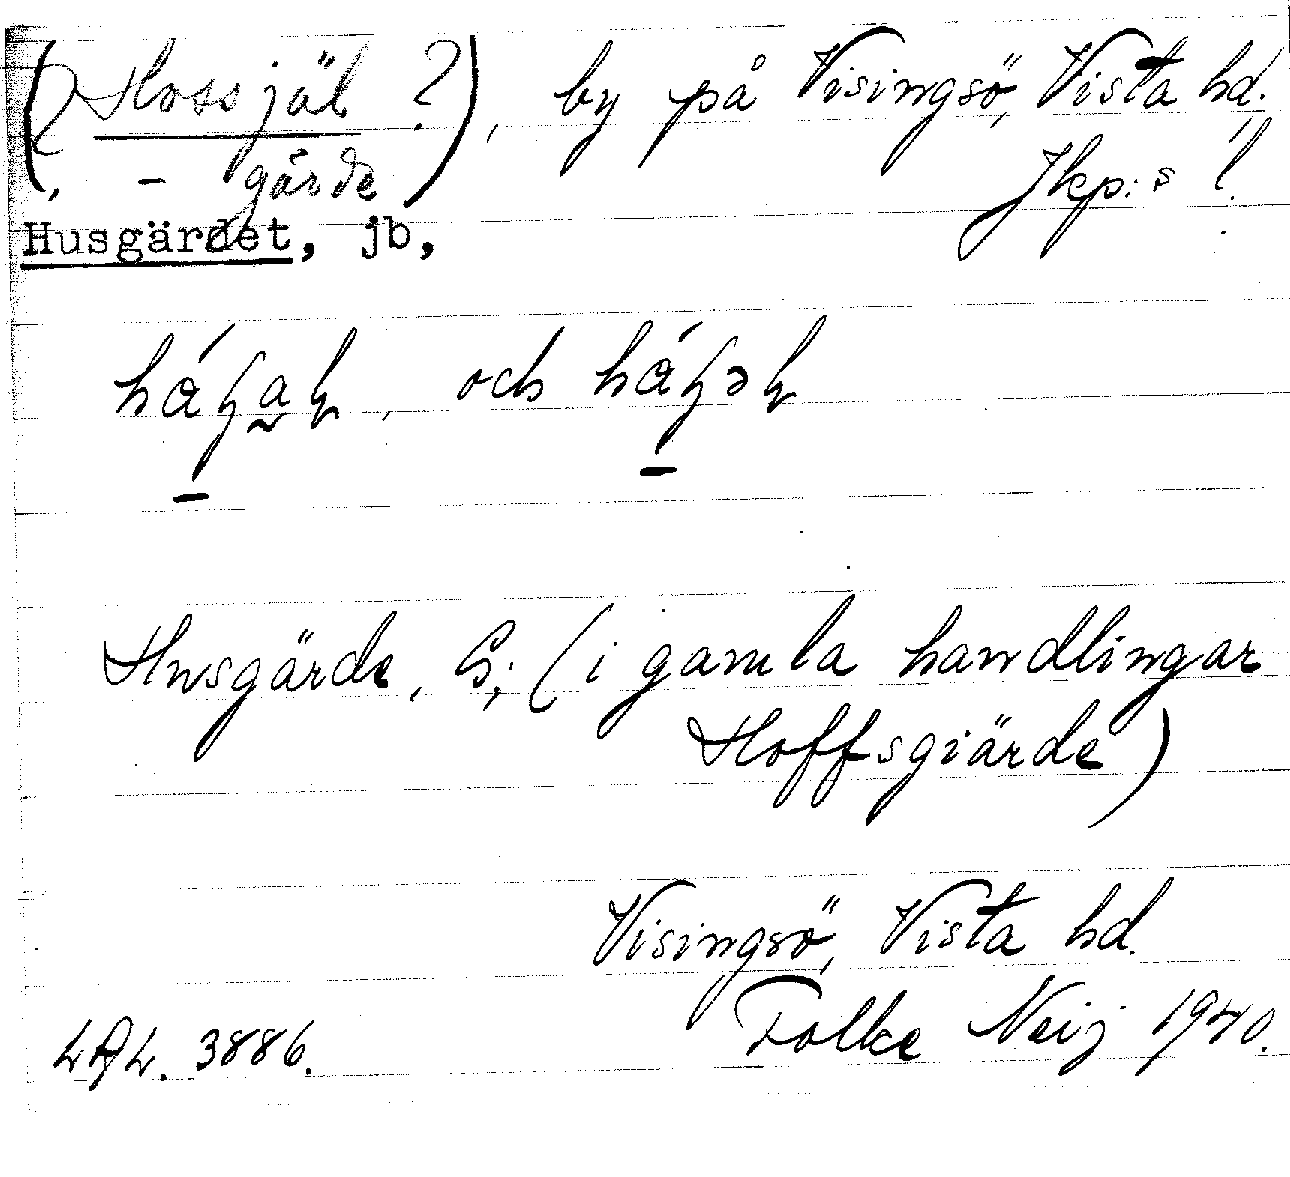 (? Hossjäl ?), by på Visingsö, Vista hd.
, - gärde) Jkp:s l.
Husgärdet, jb,
och
Husgärde, G; (i gamla handlingar
Hoffsgiärde)
Visingsö, Vista hd.
Folke Neij 1940.
LAL. 3886.